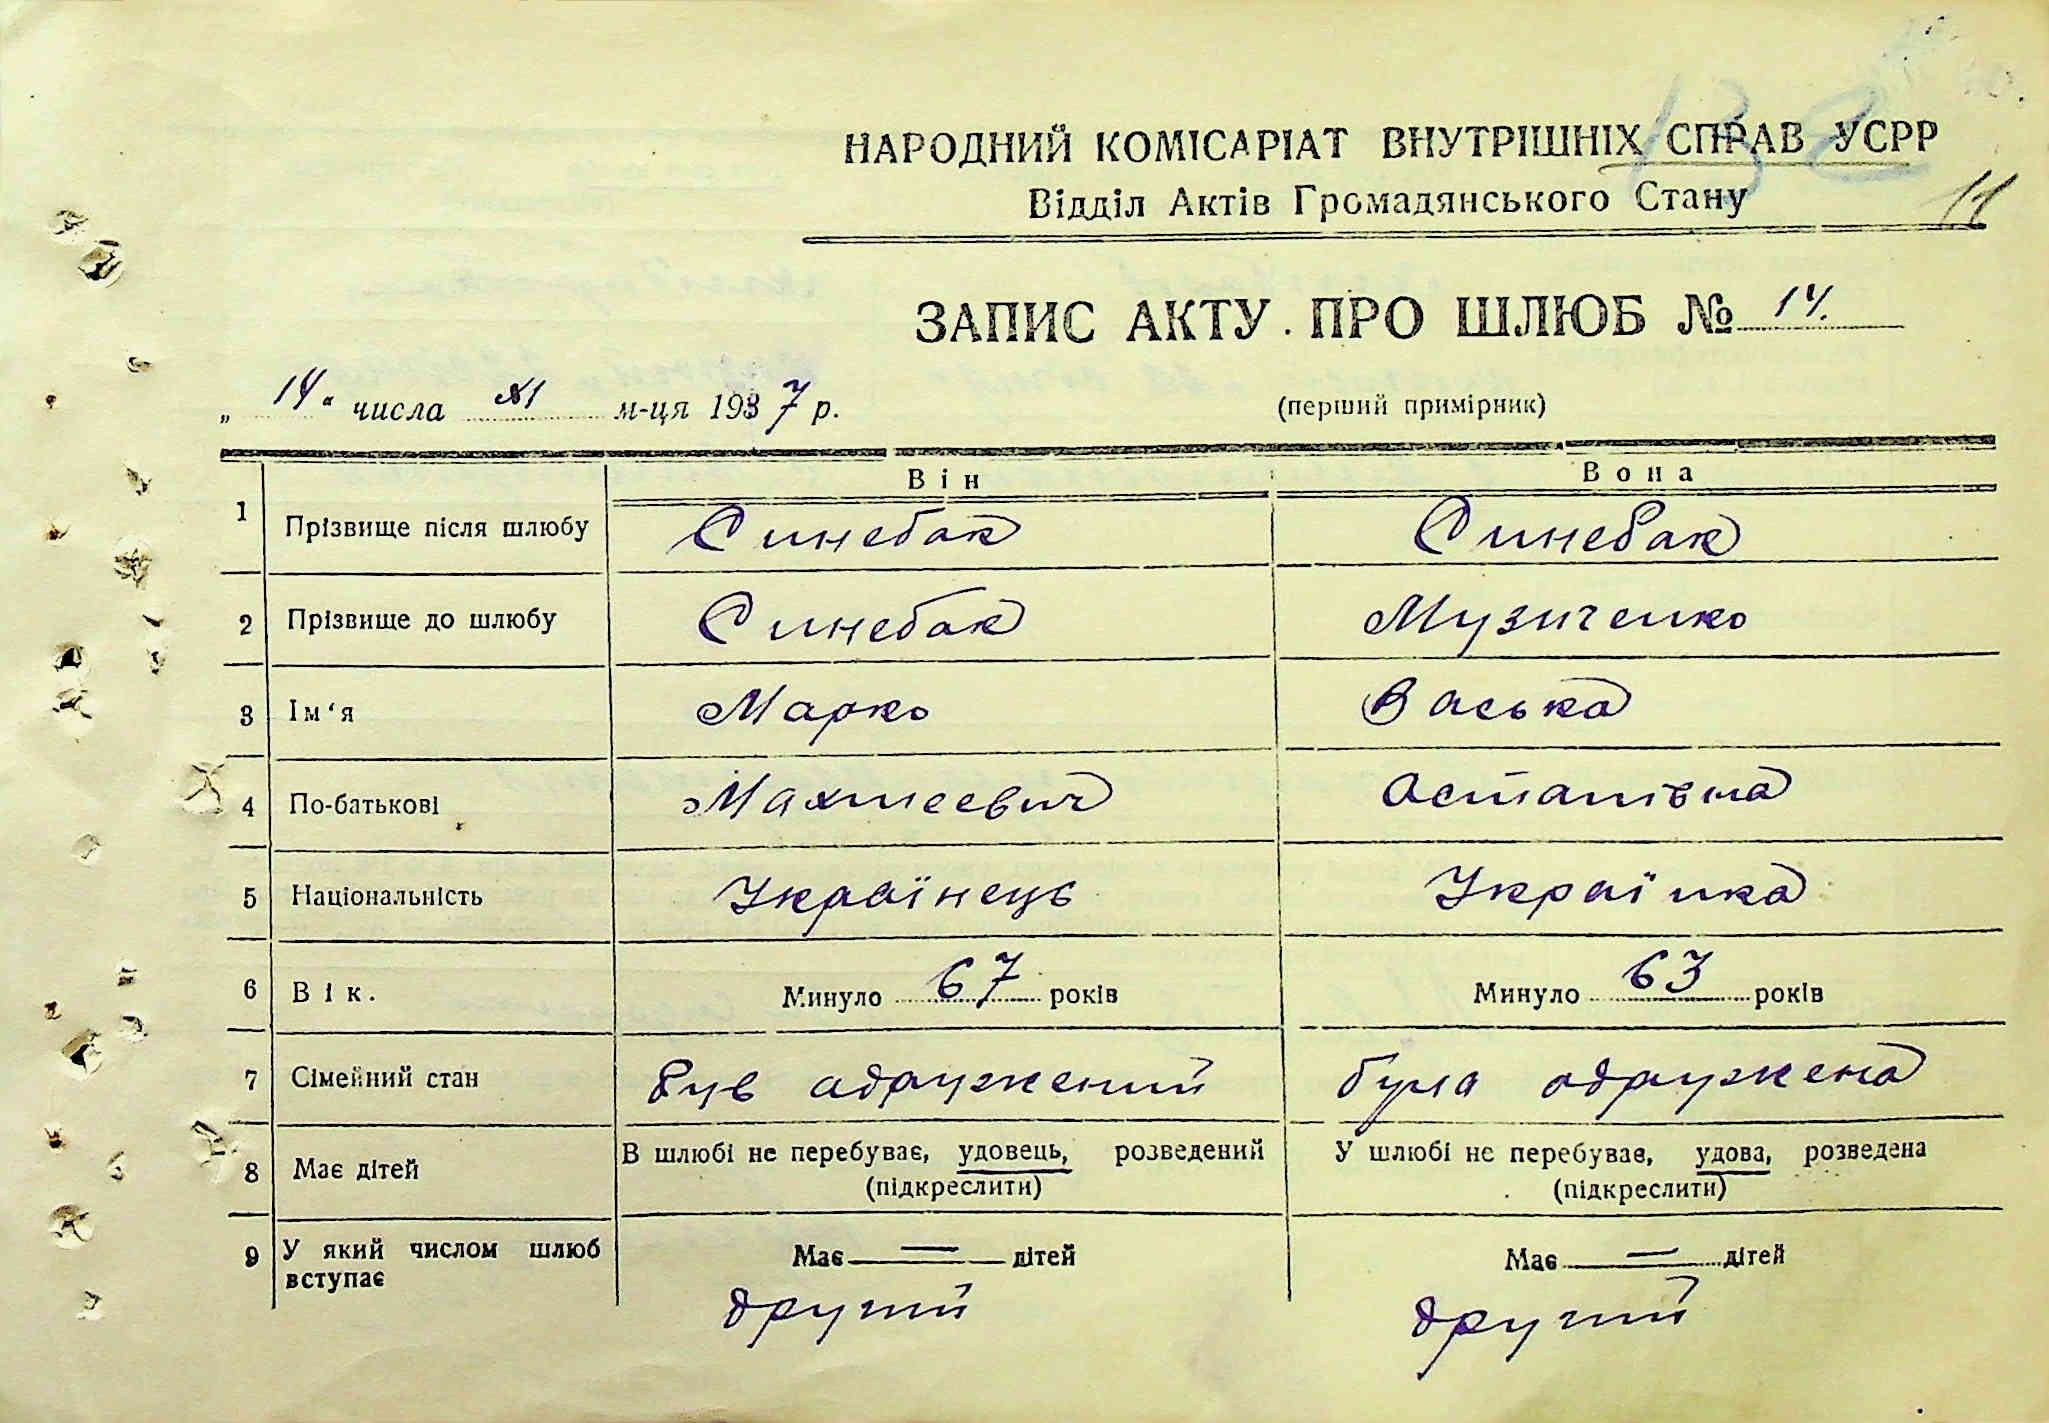 138
НАРОДНИЙ КОМІСАРІАТ ВНУТРІШНІХ СПРАВ УСРР
Відділ Актів Громадянського Стану
11
ЗАПИС АКТУ ПРО ШЛЮБ № 14.
„14" числа XI м-ця 1937 р.
(перший примірник)
Він Вона
1 Прізвище після шлюбу Синебак Синебак
2 Прізвище до шлюбу Синебак Музиченко
3 Ім'я Марко Васька
4 По-батькові Махтеевич Остапівна
5 Національність Українець Українка
6 Вік. Минуло 67 років Минуло 63 років
7 Сімейний стан Був одружений була одружена
8 Має дітей В шлюбі не перебуває, удовець, розведений У шлюбі не перебуває, удова, розведена
(підкреслити) (підкреслити)
9 У який числом шлюб вступає Має — дітей Має — дітей
другий другий